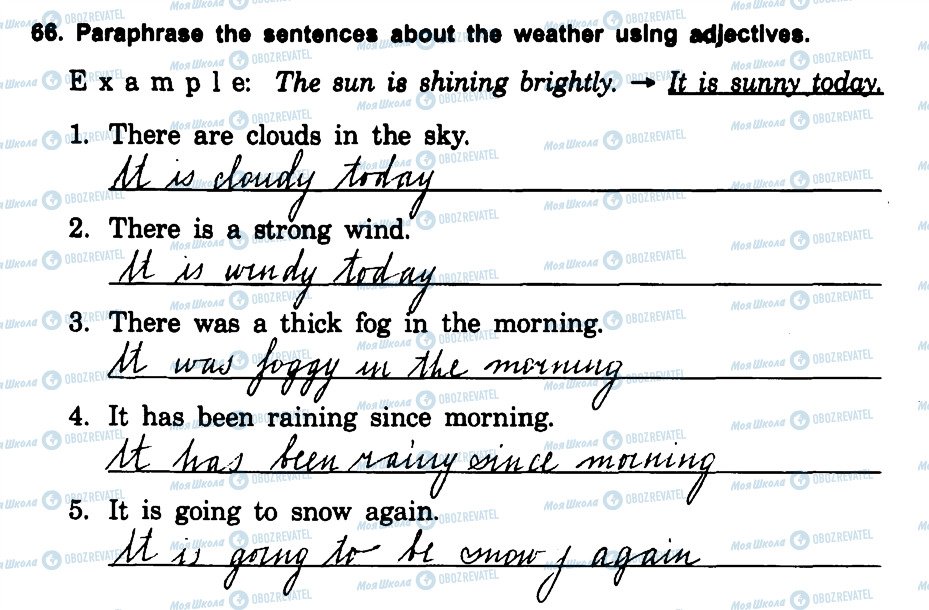 66. Paraphrase the sentences about the weather using adjectives.
E x a m p l e: The sun is shining brightly. → It is sunny today.
1. There are clouds in the sky.
It is cloudy today
2. There is a strong wind.
It is windy today
3. There was a thick fog in the morning.
It was foggy in the morning
4. It has been raining since morning.
It has been rainy since morning
5. It is going to snow again.
It is going to be snowy again
МояШкола OBOZREVATEL